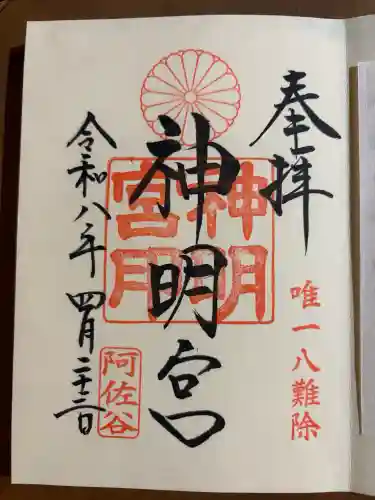 奉拝
唯一八難除
神明宮
神明
宮
阿佐谷
令和八年 四月二十三日